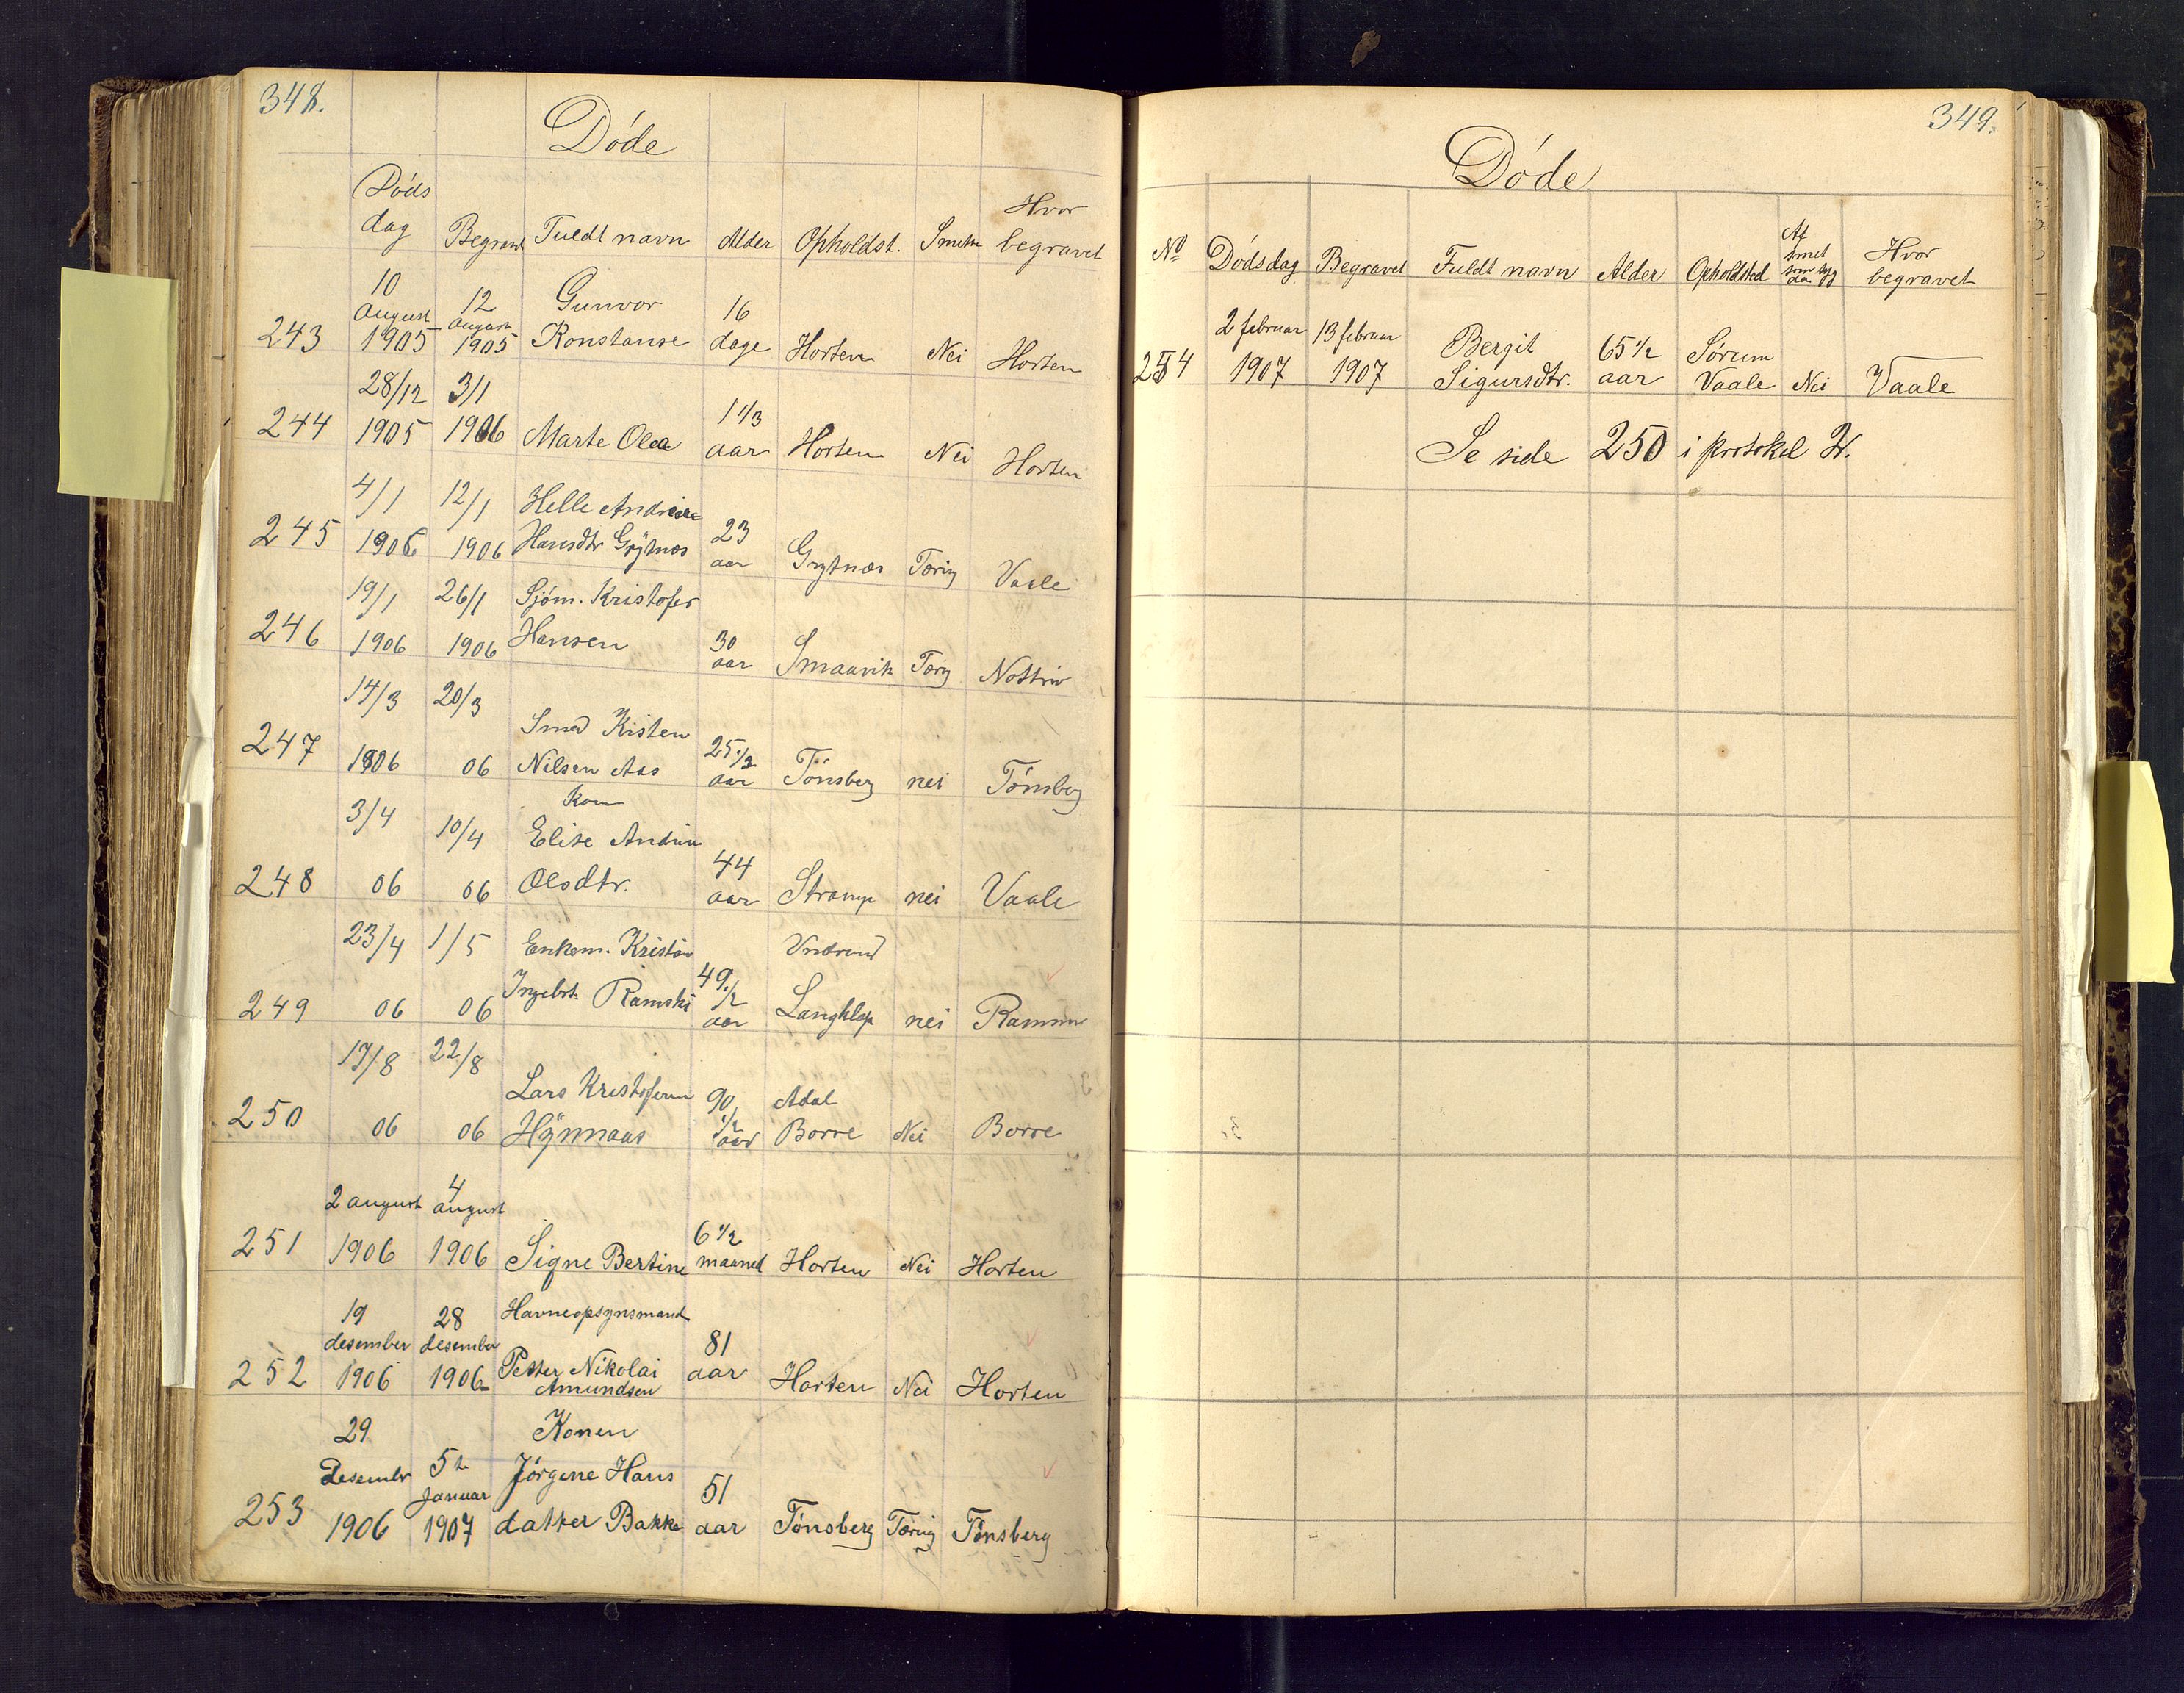 348.
Döde
Döds
dag Begravet Fuldt navn Alder Opholdst. Smitte Hvor
begravet
10 august 1905
243 12 august 1905 Gunvor
Konstanse 16
dage Horten Nei Horten
28/12 3/1
244 1905 1906 Marte Olea 1 1/3
aar Horten Nei Horten
4/1 12/1 Helle Andrea
245 1906 1906 Hansdtr Grytnes 23
aar Grytnes Tæring Vaale
19/1 26/1 Sjöm. Kristofer
246 1906 1906 Hansen 30
aar Smaavik Tæring
14/3 20/3 Smed Kisten
247 1906 06 Nilsen Aas 25 1/2
aar Tönsberg nei Tönsberg
Kone
3/4 10/4 Elise Andrea
248 06 06 Olsdtr. 44
aar nei Vaale
23/4 1/5 Enkem. Kristian
249 06 06 Ingebrt. 49 1/2
aar nei Ramnes
17/8 22/8 Lars Kristofersen
250 06 06 90 1/2
aar Adal
Borre Nei Borre
2 august 4 august
251 1906 1906 Signe Bertine 6 1/2
maaned Horten Nei Horten
19 28 Havneopsynsmand
desember desember
252 1906 1906 Petter Nikolai
Amundsen 81
aar Horten Nei Horten
29 Konen
Desembr 5te Januar Jörgine Hans
253 1906 1907 datter Bakke 51
aar Tönsberg Tæring Tönsberg
349.
Döde
No Dödsdag Begravet Fuldt navn Alder Opholdsted Af
smit
som syg
dom Hvor
begravet
2 februar 13 februar Bergit 65 1/2 Sörum
254 1907 1907 Sigursdtr. aar Vaale Nei Vaale
Se side 250 i protokol